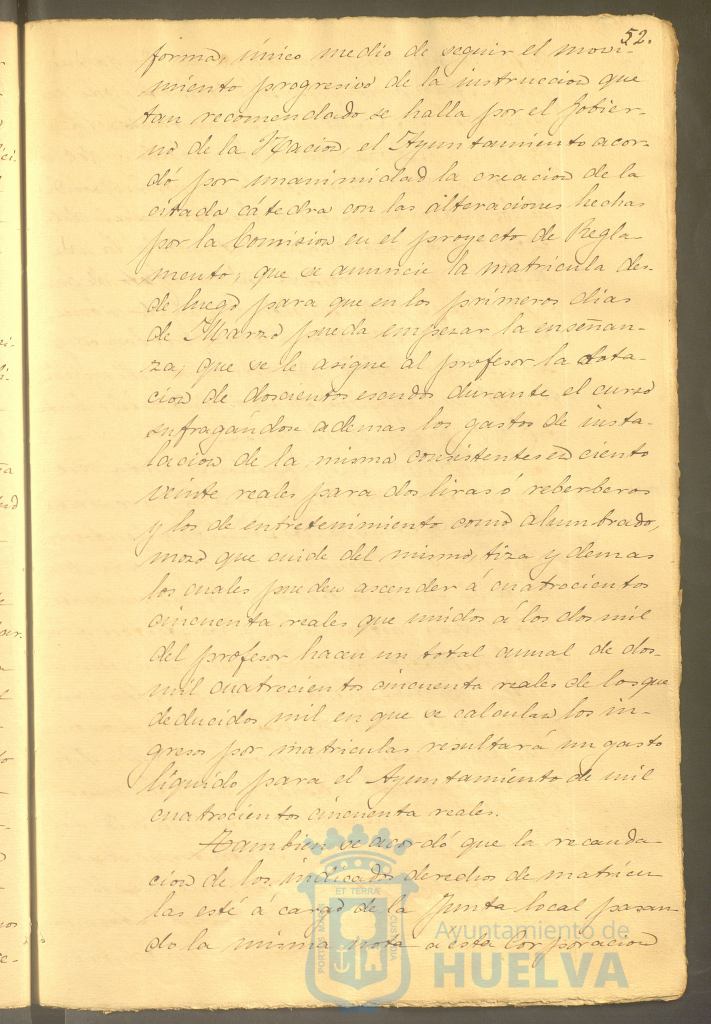 52.
forma, único medio de seguir el movi-
miento progresivo de la instruccion que
tan recomendado se halla por el Gobier-
no de la Nacion, el Ayuntamiento acor-
dó por unanimidad la creacion de la
citada cátedra con las alteraciones hechas
por la Comision en el proyecto de Regla-
mento, que se anuncie la matricula des-
de luego para que en los primeros dias
de Marzo pueda empezar la enseñan-
za, que se le asigne al profesor la dota-
cion de doscientos escudos durante el curso
sufragándose ademas los gastos de insta-
lacion de la misma consistentes en ciento
veinte reales para dos liras ó reberberos
y los de entretenimiento como alumbrado,
mozo que cuide del mismo, tiza y demas
los cuales pueden ascender á cuatrocientos
cincuenta reales que unidos á los dos mil
del profesor hacen un total anual de dos
mil cuatrocientos cincuenta reales de los que
deducidos mil en que se calculan los in-
gresos por matriculas resultará un gasto
líquido para el Ayuntamiento de mil
cuatrocientos cincuenta reales.
Tambien se acordó que la recauda-
cion de los indicados derechos de matricu
las esté á cargo de la Junta local pasan-
do la misma nota a esta Corporacion
Ayuntamiento de
HUELVA